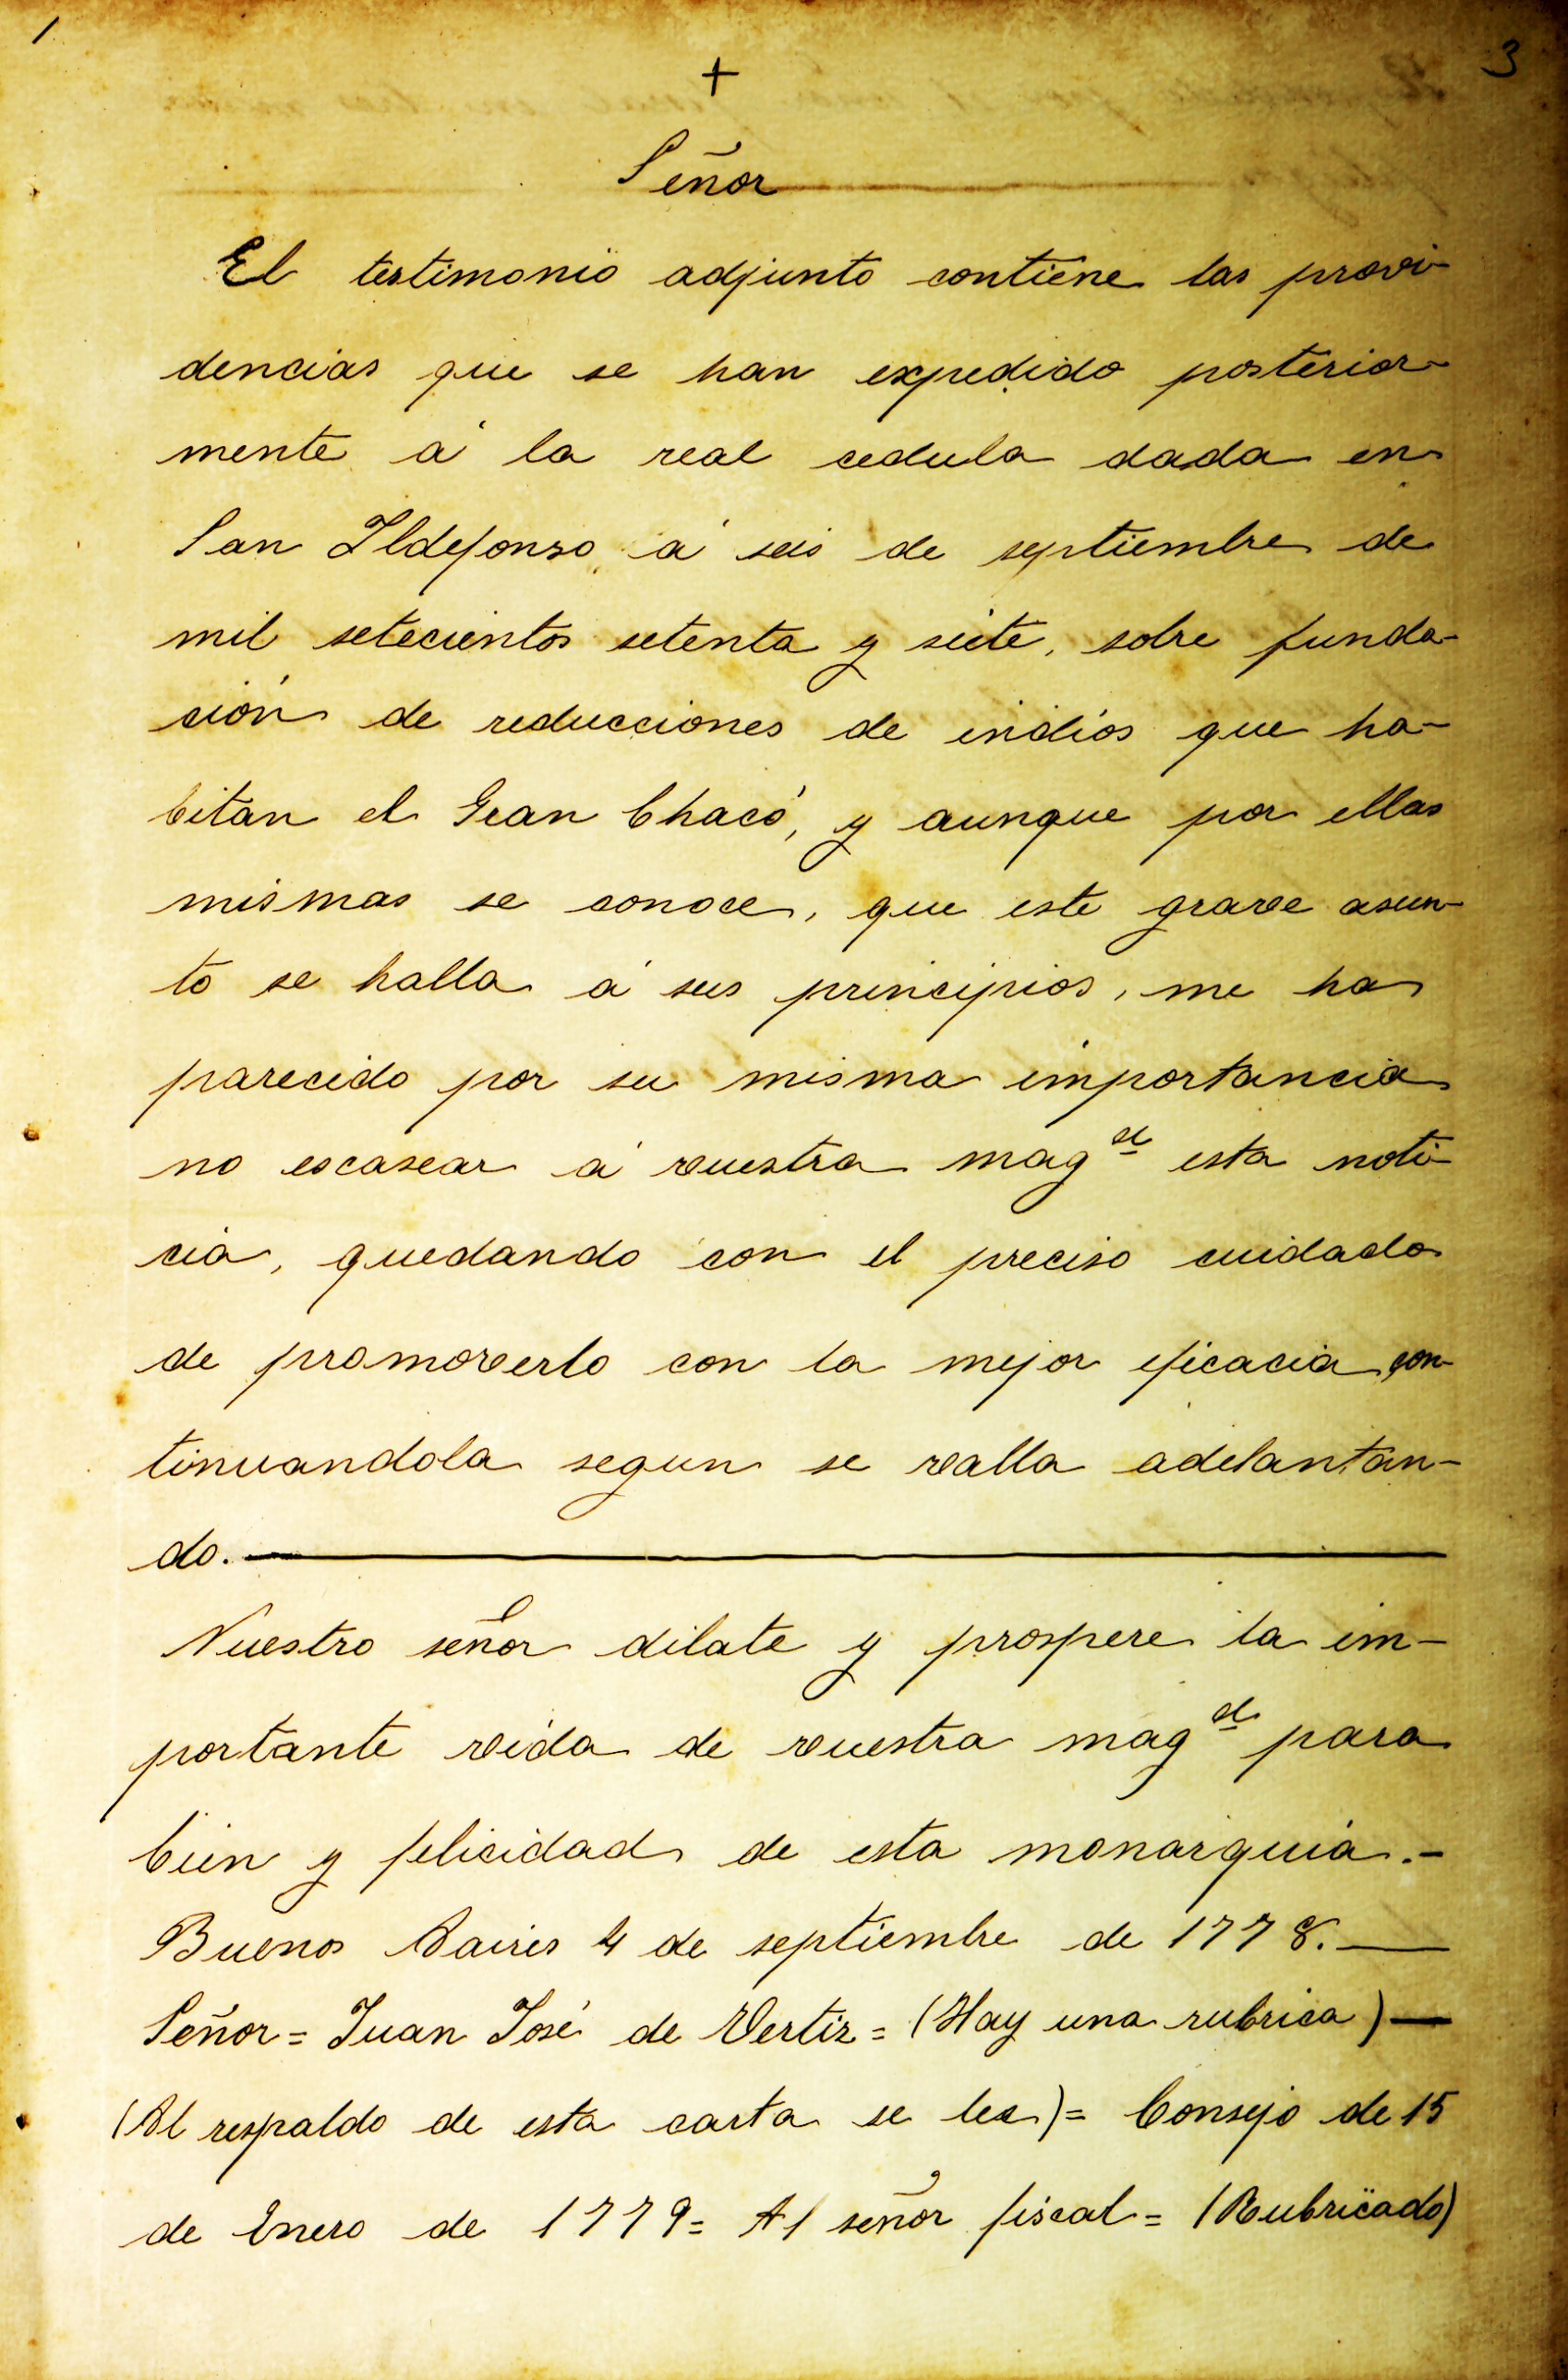 1
3
+
Señor
El testimonio adjunto contiene las provi-
dencias que se han expedido posterior-
mente á la real cedula dada en
San Ildefonso á seis de septiembre de
mil setecientos setenta y siete, sobre funda-
ción de reducciones de indios que ha-
bitan el Gran Chaco, y aunque por ellas
mismas se conoce, que este grave asun-
to se halla á sus principios, me ha
parecido por su misma importancia
no escasear á vuestra magd esta noti-
cia, quedando con el preciso cuidado
de promoverlo con la mejor eficacia con-
tinuandola segun se valla adelantan-
do.
Nuestro señor dilate y prospere la im-
portante vida de vuestra magd para
bien y felicidad de esta monarquia.-
Buenos Aaires 4 de septiembre de 1778.
Señor = Juan José de Vertiz = (Hay una rubrica)
(Al respaldo de esta carta se lee) = Consejo de 15
de Enero de 1779 = Al señor fiscal = (Rubricado)